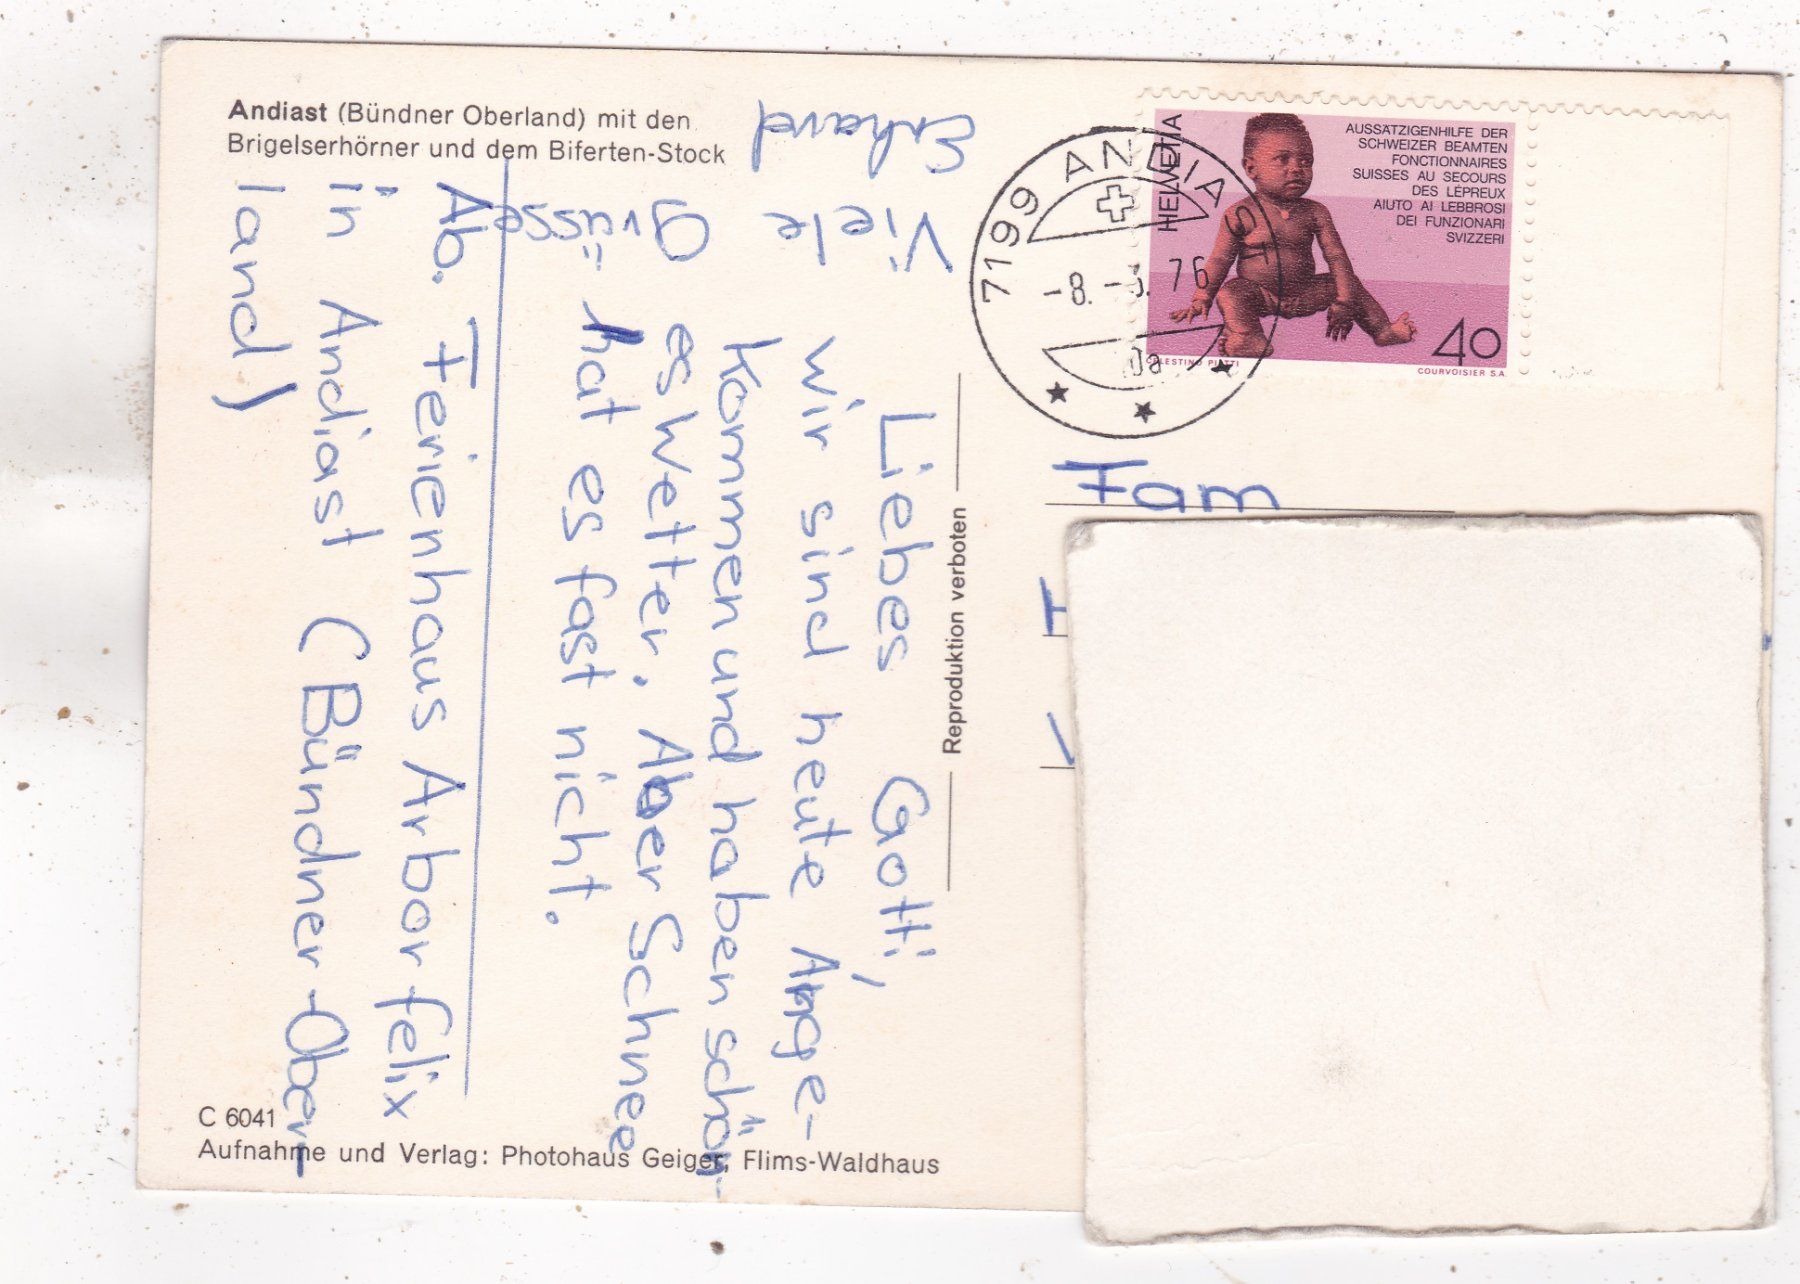 Andiast (Bündner Oberland) mit den
Brigelserhörner und dem Biferten-Stock
Liebes Gotti,
wir sind heute Ange-
kommen und haben schön-
es Wetter. Aber Schnee
hat es fast nicht.
Viele
grüsse
Erhard
Ab. Ferienhaus Arbor felix
in Andiast (Bündner-Ober-
land)
Reproduktion verboten
C 6041
Aufnahme und Verlag: Photohaus Geiger, Flims-Waldhaus
7199 ANDIAST
-8.-3.76
HELVETIA
AUSSÄTZIGENHILFE DER
SCHWEIZER BEAMTEN
FONCTIONNAIRES
SUISSES AU SECOURS
DES LÉPREUX
AIUTO AI LEBBROSI
DEI FUNZIONARI
SVIZZERI
40
CELESTINO PIATTI
COURVOISIER S.A.
Fam